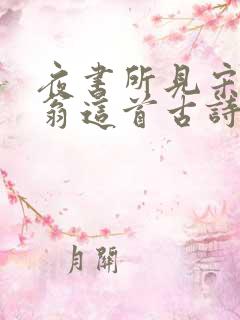 夜書所見宋
翁這首古詩
月開